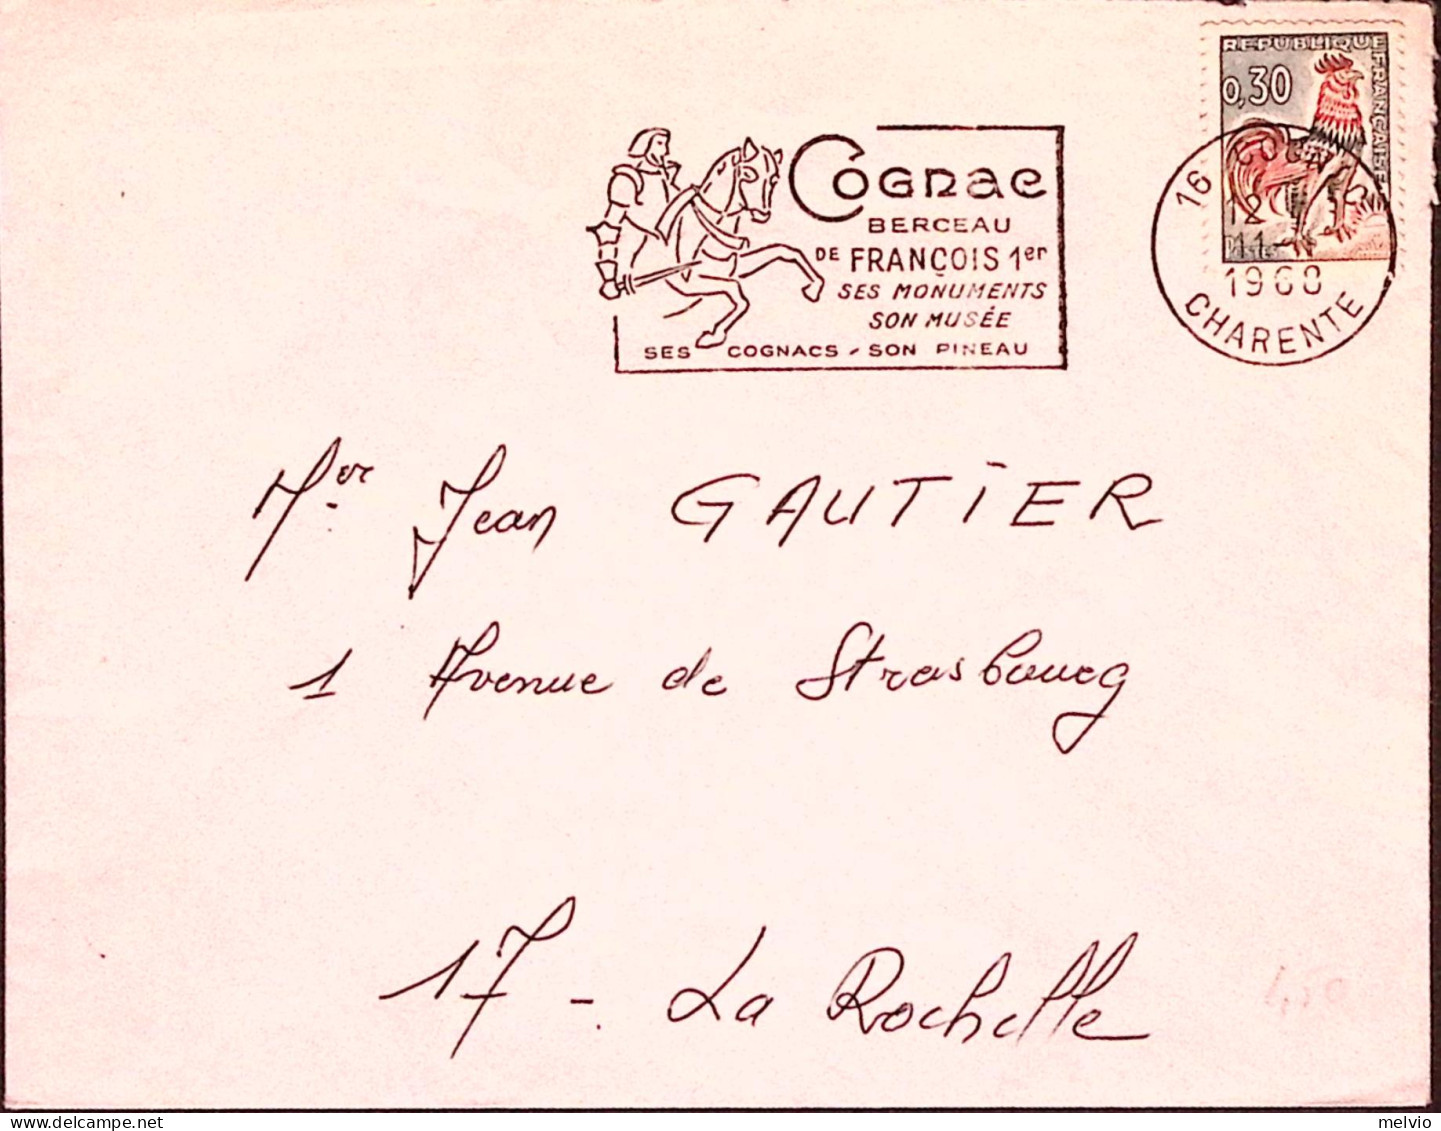 REPUBLIQUE FRANÇAISE
0,30
COGNAC
BERCEAU
DE FRANÇOIS 1er
SES MONUMENTS
SON MUSÉE
SES COGNACS - SON PINEAU
16 COGNAC
12
11
1968
CHARENTE
Mr Jean GAUTIER
1 Avenue de Strasbourg
17 - La Rochelle
1,50
melvio